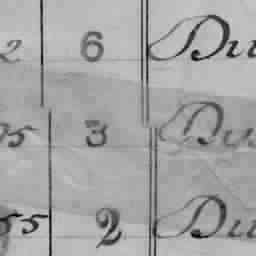 2 6 Du
95 3 Du
55 2 Du